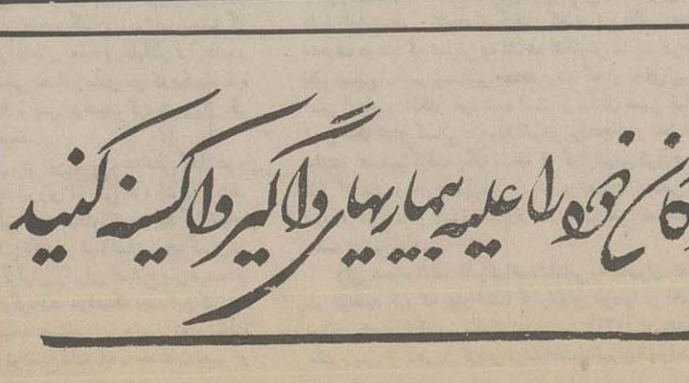 خود را علیه بیماریهای واگیر واکسینه کنید